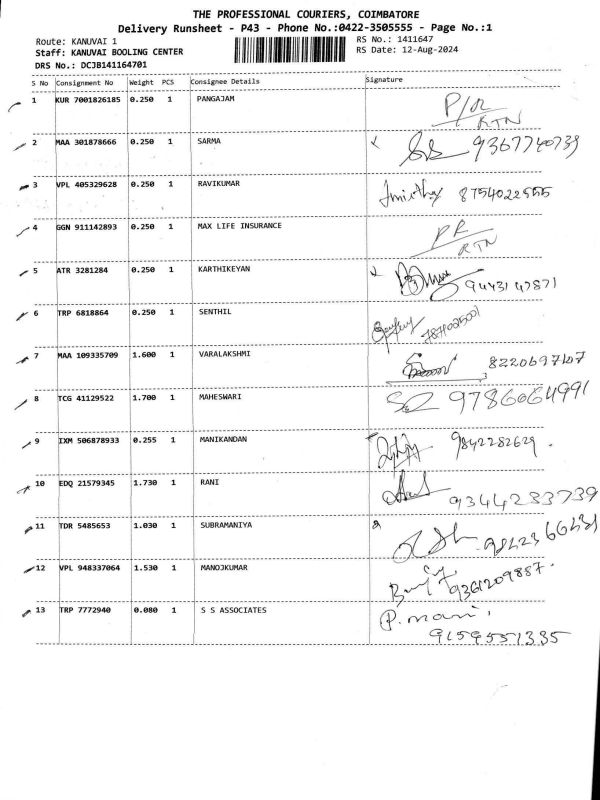 THE PROFESSIONAL COURIERS, COIMBATORE
Delivery Runsheet - P43 - Phone No.:0422-3505555 - Page No.:1
Route: KANUVAI 1 RS No.: 1411647
Staff: KANUVAI BOOLING CENTER RS Date: 12-Aug-2024
DRS No.: DCJB141164701
S No Consignment No Weight PCS Consignee Details Signature
1 KUR 7001826185 0.250 1 PANGAJAM
RTN
2 MAA 301878666 0.250 1 SARMA 9367740739
3 VPL 405329628 0.250 1 RAVIKUMAR 8754022555
4 GGN 911142893 0.250 1 MAX LIFE INSURANCE PR
RTN
5 ATR 3281284 0.250 1 KARTHIKEYAN 9443147871
6 TRP 6818864 0.250 1 SENTHIL
7 MAA 109335709 1.600 1 VARALAKSHMI 8220697107
8 TCG 41129522 1.700 1 MAHESWARI 9786064991
9 IXM 506878933 0.255 1 MANIKANDAN 9842282629.
10 EDQ 21579345 1.730 1 RANI 9344233739
11 TDR 5485653 1.030 1 SUBRAMANIYA
12 VPL 948337064 1.530 1 MANOJKUMAR 9361209887.
13 TRP 7772940 0.080 1 S S ASSOCIATES P. mani,
9159551335